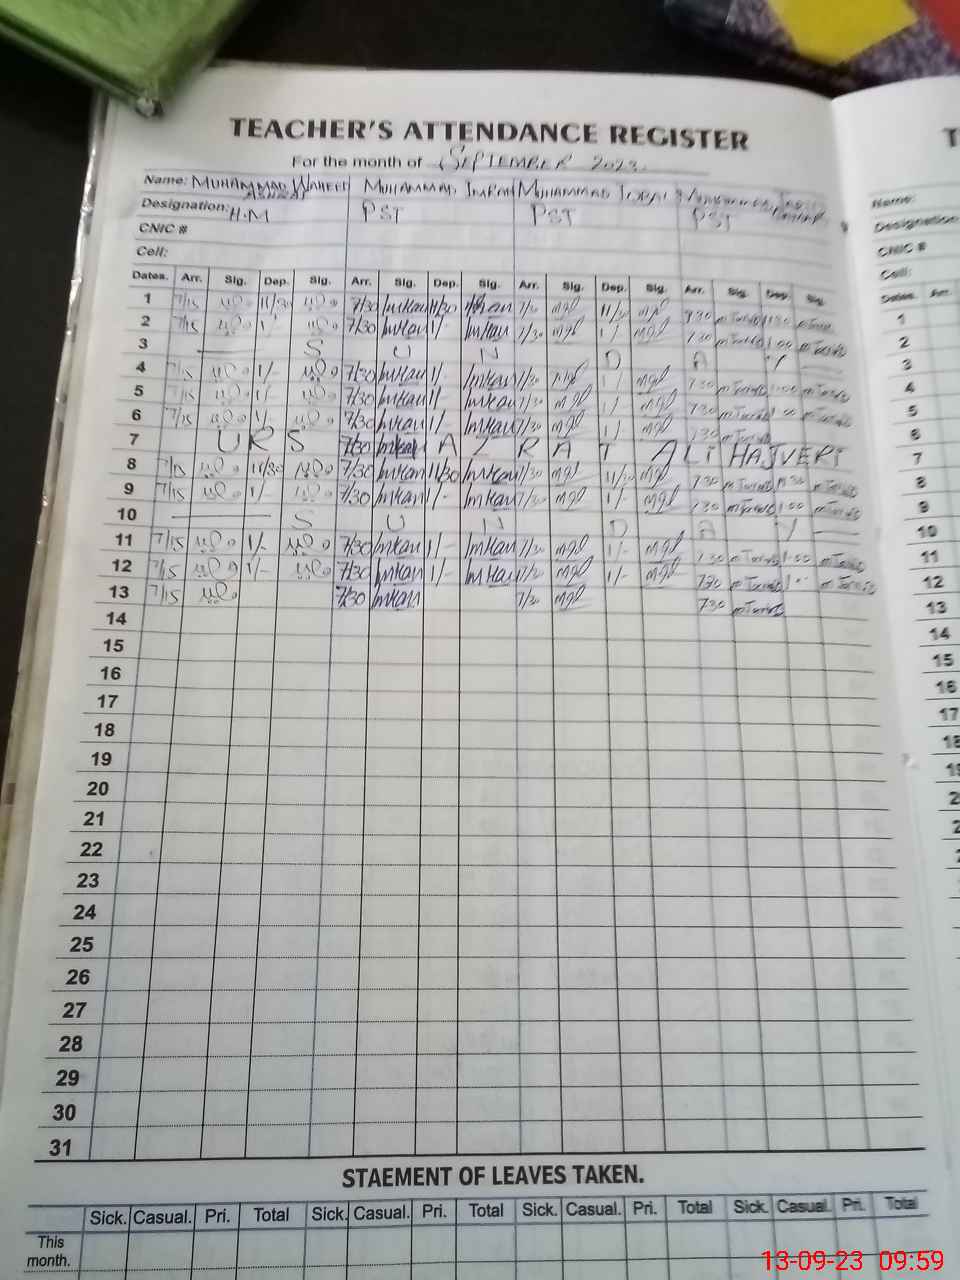 TEACHER'S ATTENDANCE REGISTER
For the month of SEPTEMBER 2023.
Name: MUHAMMAD WAHEED MUHAMMAD IMRAN MUHAMMAD IQBAL
Designation: H.M PST PST PST
CNIC #
Cell:
Dates. Arr. Sig. Dep. Sig. Arr. Sig. Dep. Sig. Arr. Sig. Dep. Sig. Arr. Sig. Dep. Sig.
1 7/15 وحید 11/30 وحید 7/30 Imran 11/30 Imran 7/30 mgl 11/30 mgl 730 1130
2 7/15 وحید 1/- وحید 7/30 Imran 1/- Imran 7/30 mgl 1/- mgl 730 1:00
3 S U N D A Y
4 7/15 وحید 1/- وحید 7/30 Imran 1/- Imran 7/30 mgl 1/- mgl 730 1:00
5 7/15 وحید 1/- وحید 7/30 Imran 1/- Imran 7/30 mgl 1/- mgl 730 1:00
6 7/15 وحید 1/- وحید 7/30 Imran 1/- Imran 7/30 mgl 1/- mgl 730
7 URS AZRAT ALI HAJVERI
8 7/15 وحید 11/30 وحید 7/30 Imran 11/30 Imran 7/30 mgl 11/30 mgl 730 1130
9 7/15 وحید 1/- وحید 7/30 Imran 1/- Imran 7/30 mgl 1/- mgl 730 1:00
10 S U N D A Y
11 7/15 وحید 1/- وحید 7/30 Imran 1/- Imran 7/30 mgl 1/- mgl 730 1:00
12 7/15 وحید 1/- وحید 7/30 Imran 1/- Imran 7/30 mgl 1/- mgl 730
13 7/15 وحید 7/30 Imran 7/30 mgl 730
14
15
16
17
18
19
20
21
22
23
24
25
26
27
28
29
30
31
STAEMENT OF LEAVES TAKEN.
Sick. Casual. Pri. Total Sick. Casual. Pri. Total Sick. Casual. Pri. Total Sick. Casual. Pri. Total
This
month.
Name:
Designation
CNIC #
Cell:
Dates. Arr.
1
2
3
4
5
6
7
8
9
10
11
12
13
14
15
16
17
18
13-09-23 09:59